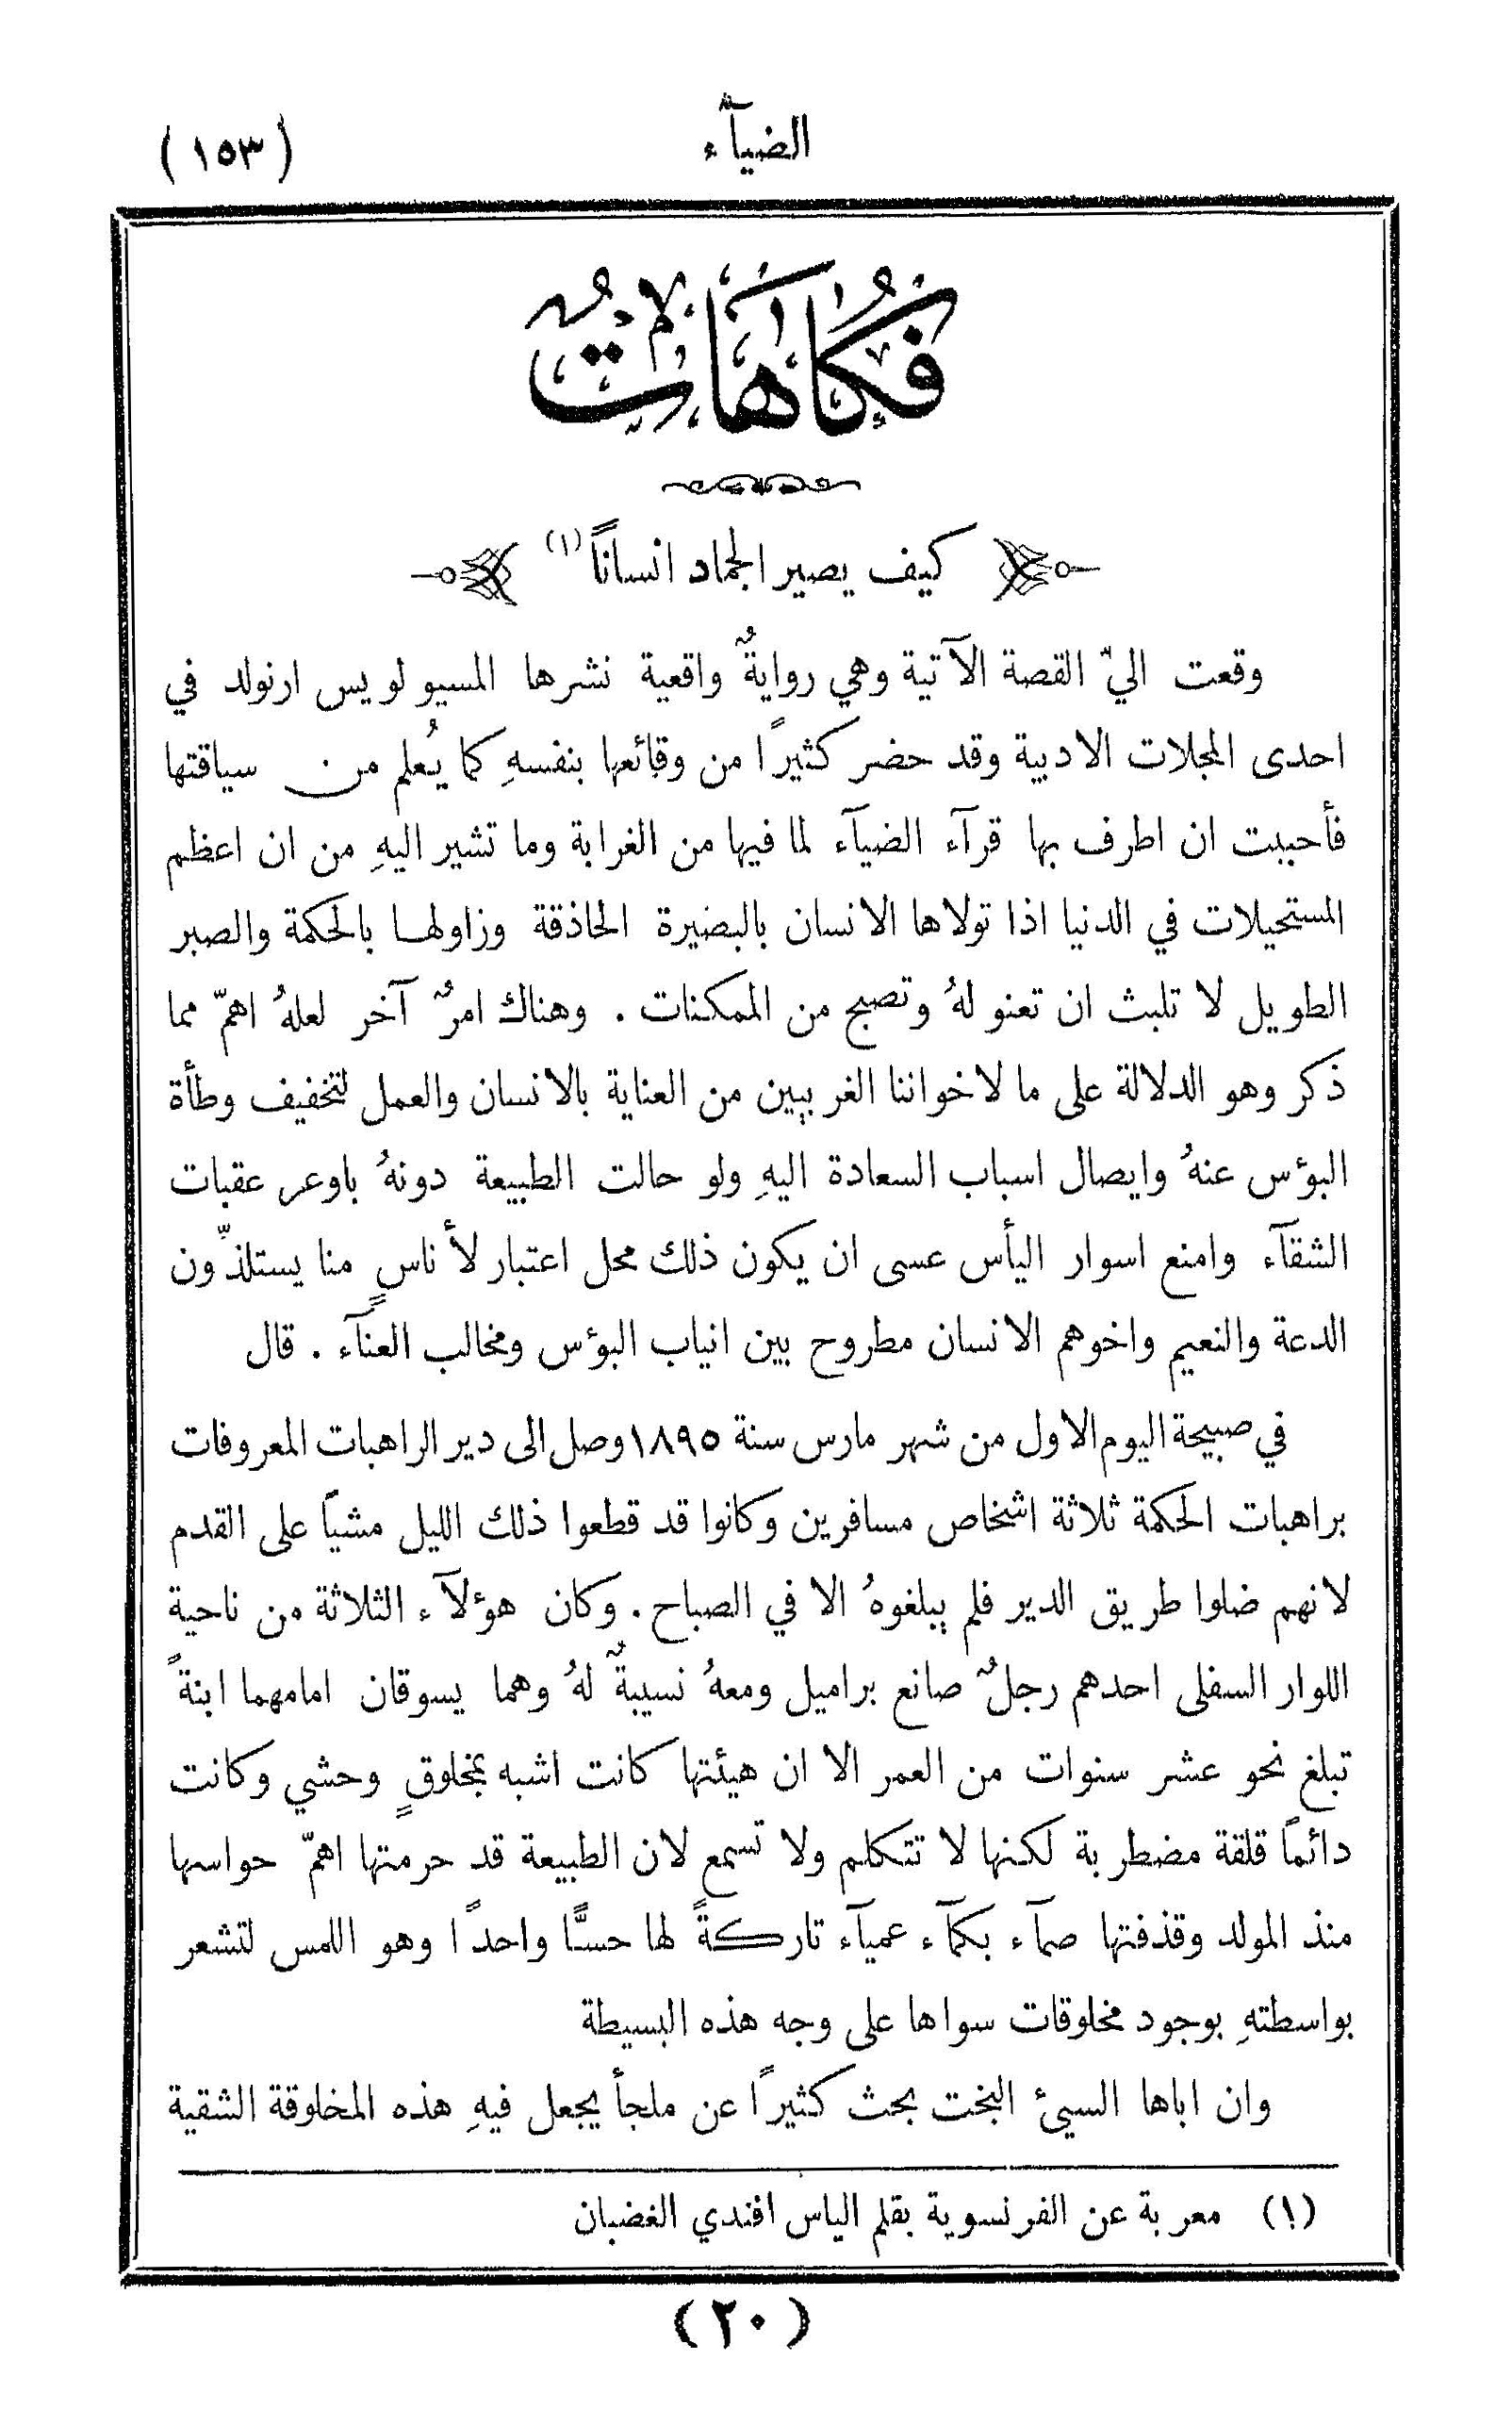 الضيآء
(١٥٣)
فُكَاهَاتٌ
كيف يصير الجماد انسانًا (١)
وقعت اليّ القصة الآتية وهي روايةٌ واقعية نشرها المسيو لويس ارنولد في
احدى المجلات الادبية وقد حضر كثيرًا من وقائعها بنفسهِ كما يُعلم من سياقتها
فأحببت ان اطرف بها قرآء الضيآء لما فيها من الغرابة وما تشير اليهِ من ان اعظم
المستحيلات في الدنيا اذا تولاها الانسان بالبصيرة الحاذقة وزاولها بالحكمة والصبر
الطويل لا تلبث ان تعنو لهُ وتصبح من الممكنات . وهناك امرٌ آخر لعلهُ اهمّ مما
ذكر وهو الدلالة على ما لاخواننا الغربيين من العناية بالانسان والعمل لتخفيف وطأة
البؤس عنهُ وايصال اسباب السعادة اليهِ ولو حالت الطبيعة دونهُ باوعر عقبات
الشقآء وامنع اسوار اليأس عسى ان يكون ذلك محل اعتبار لأناسٍ منا يستلذّون
الدعة والنعيم واخوهم الانسان مطروح بين انياب البؤس ومخالب العنآء . قال
في صبيحة اليوم الاول من شهر مارس سنة ١٨٩٥ وصل الى دير الراهبات المعروفات
براهبات الحكمة ثلاثة اشخاص مسافرين وكانوا قد قطعوا ذلك الليل مشيًا على القدم
لانهم ضلوا طريق الدير فلم يبلغوهُ الا في الصباح . وكان هؤلآء الثلاثة من ناحية
اللوار السفلى احدهم رجلٌ صانع براميل ومعهُ نسيبةٌ لهُ وهما يسوقان امامهما ابنةً
تبلغ نحو عشر سنوات من العمر الا ان هيئتها كانت اشبه بمخلوقٍ وحشي وكانت
دائمًا قلقة مضطربة لكنها لا تتكلم ولا تسمع لان الطبيعة قد حرمتها اهمّ حواسها
منذ المولد وقذفتها صمآء بكمآء عميآء تاركةً لها حسًّا واحدًا وهو اللمس لتشعر
بواسطتهِ بوجود مخلوقات سواها على وجه هذه البسيطة
وان اباها السيئ البخت بحث كثيرًا عن ملجأ يجعل فيهِ هذه المخلوقة الشقية
(١) معربة عن الفرنسوية بقلم الياس افندي الغضبان
(٢٠)